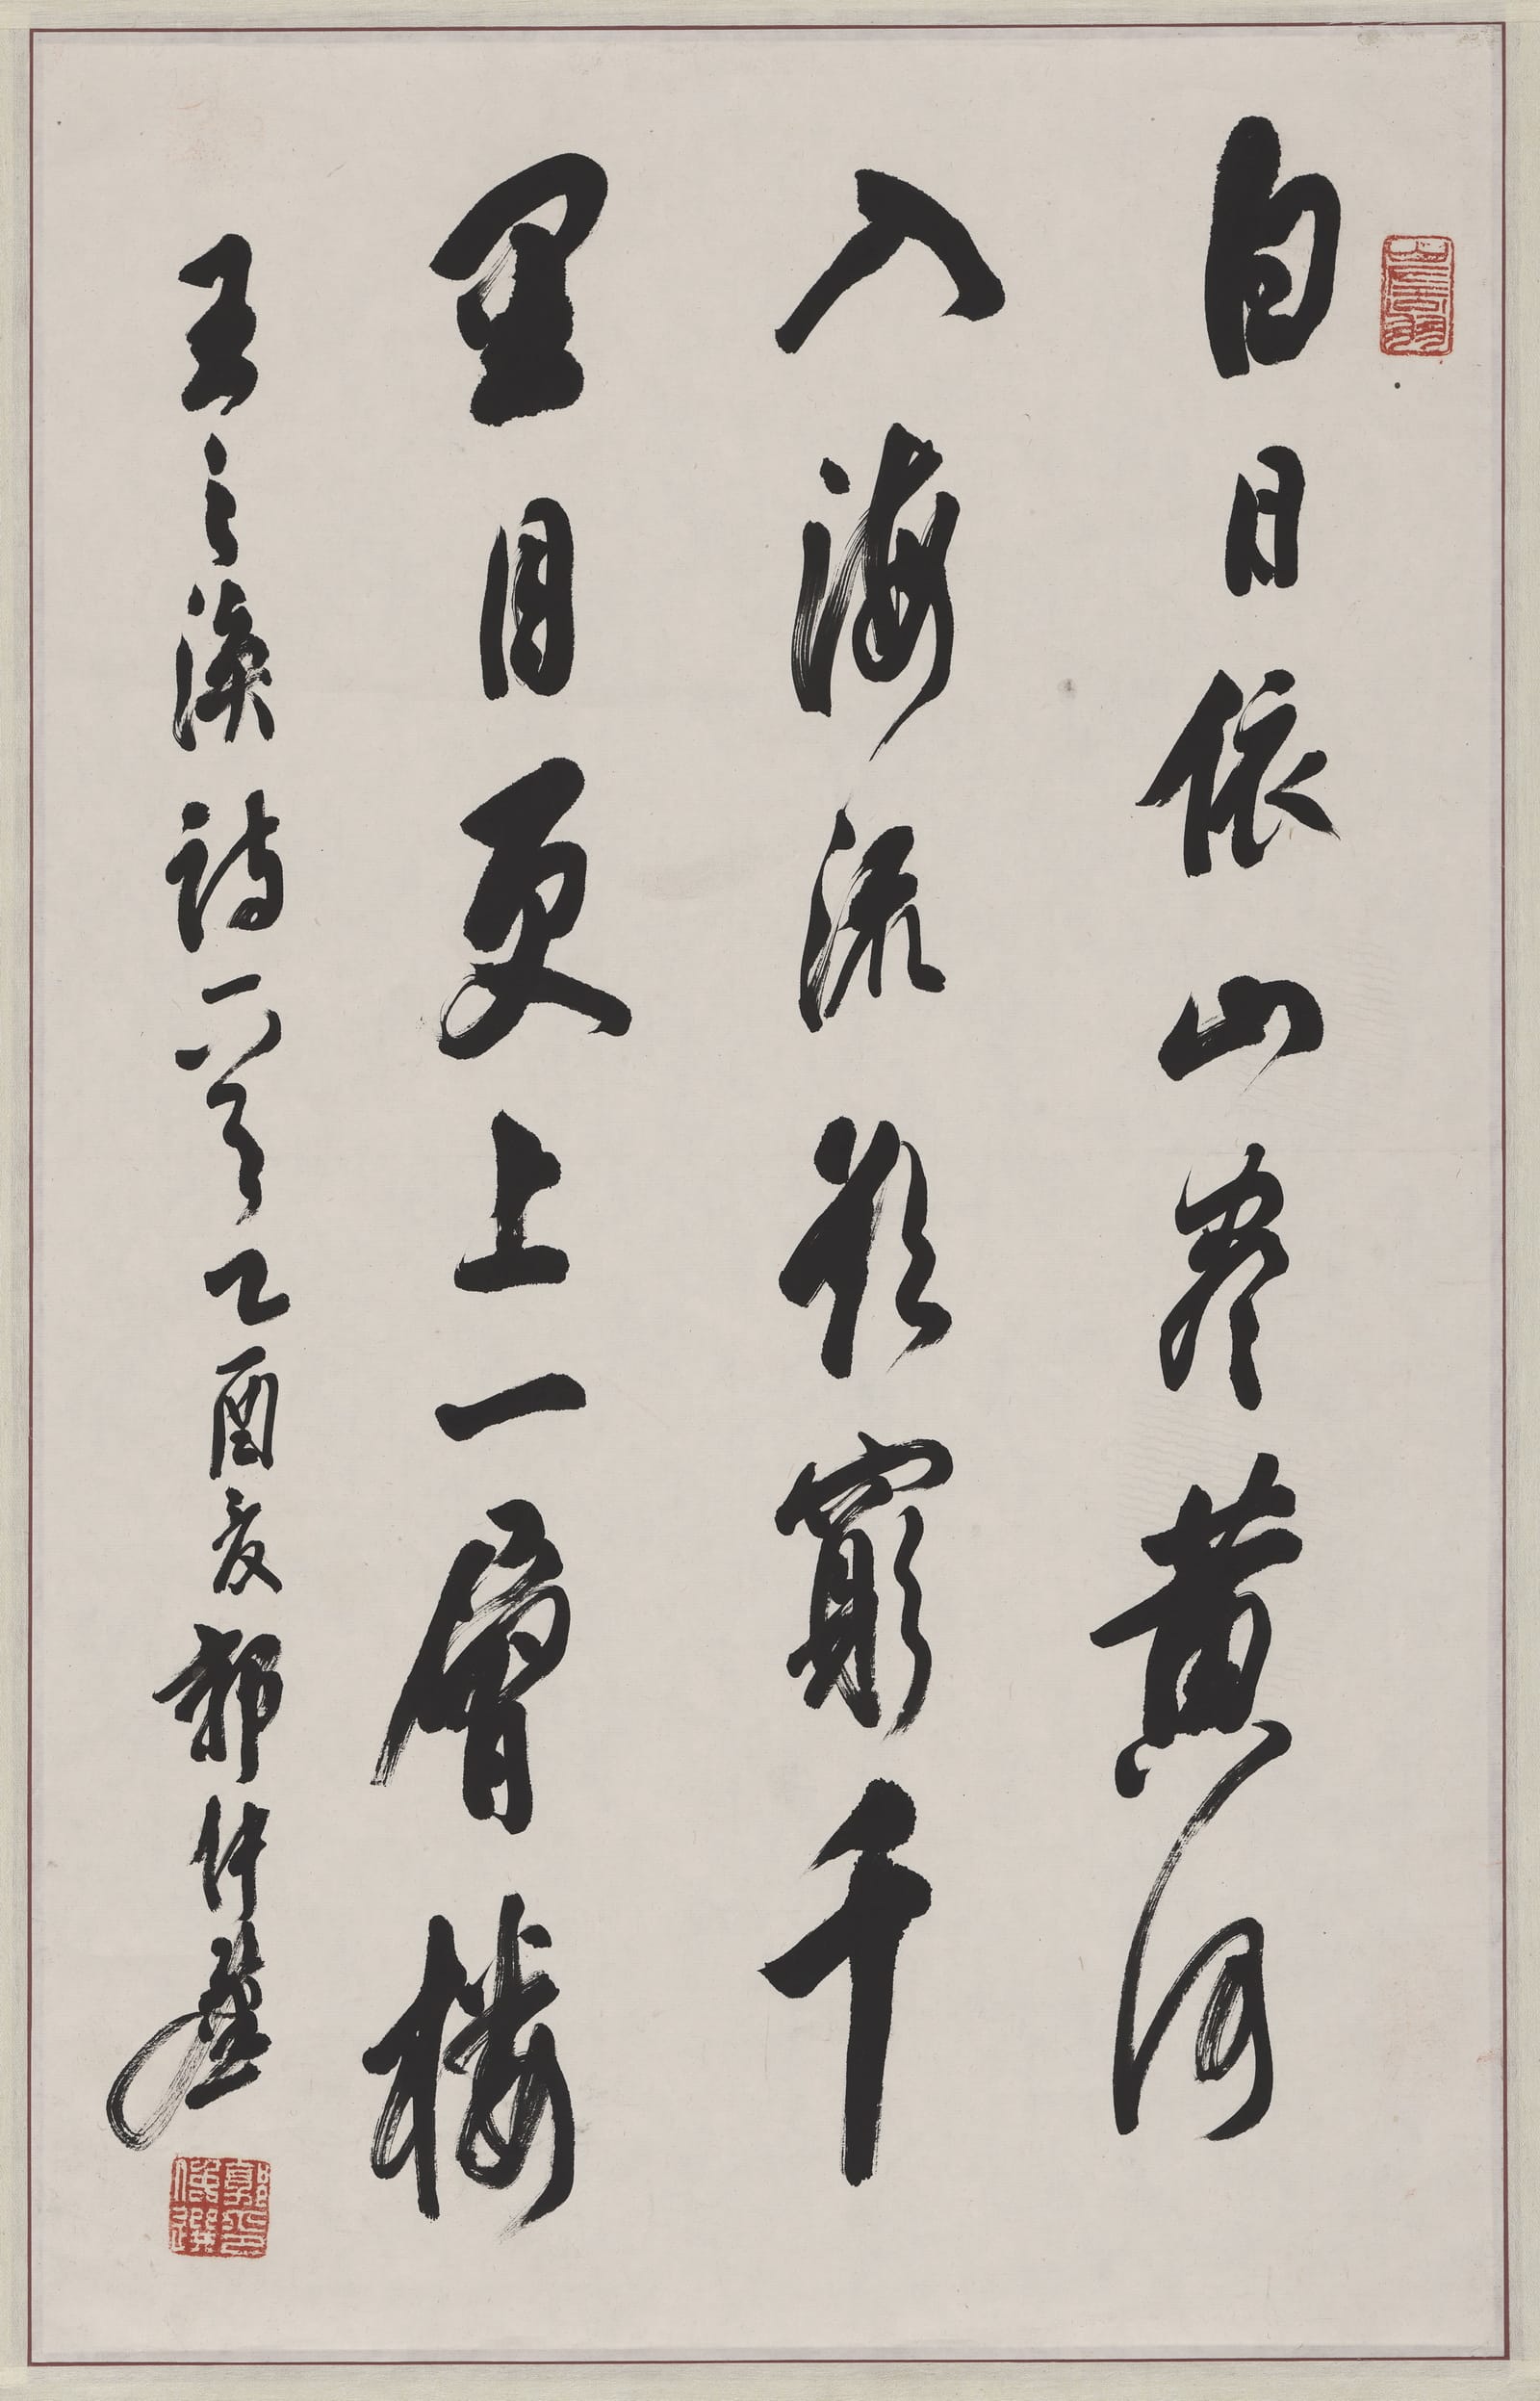 白日依山尽黄河
入海流欲窮千
里目更上一層楼
王之渙詩一首乙酉夏郭仲選